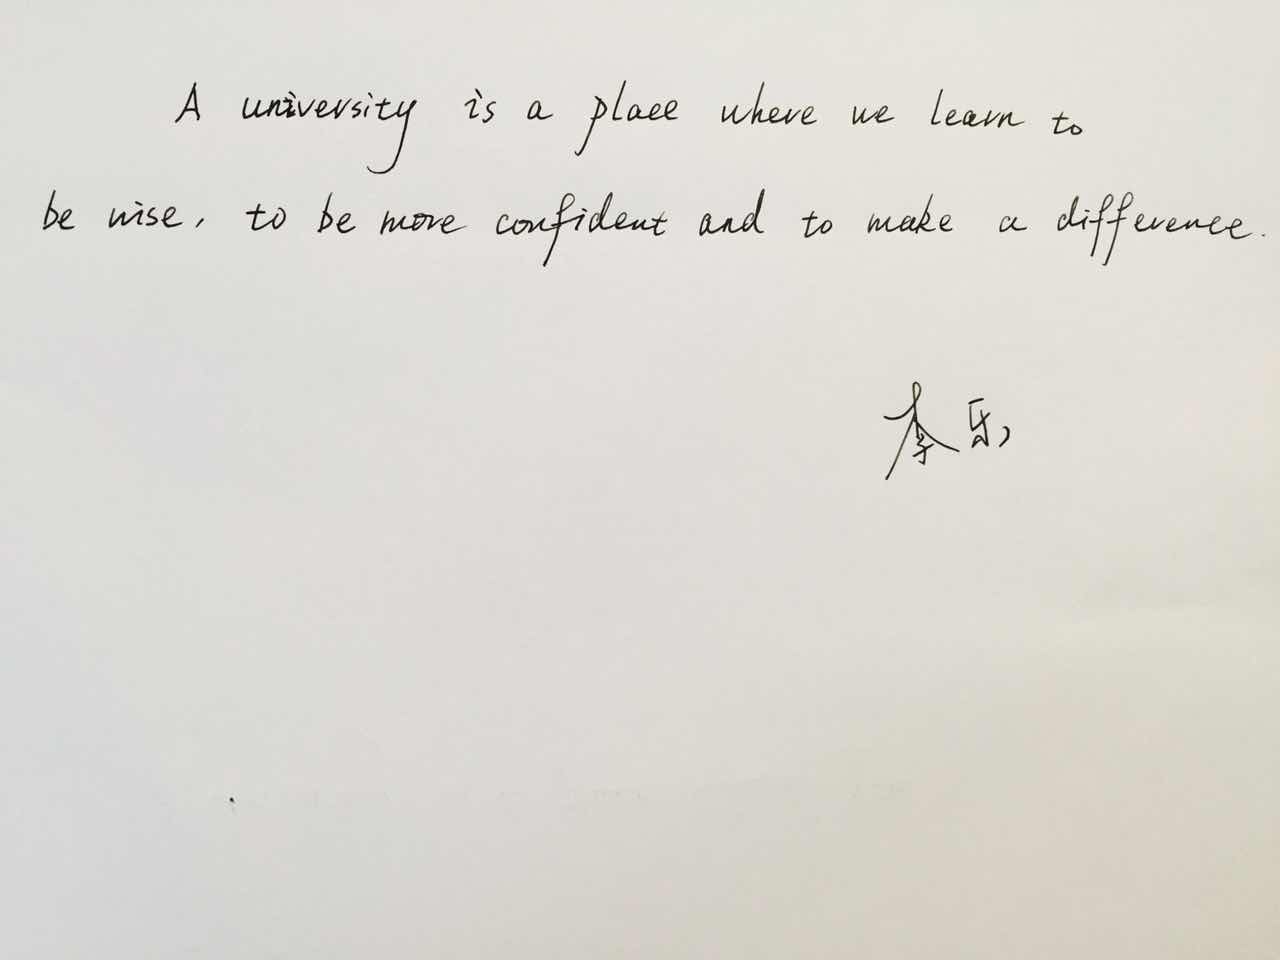 A university is a place where we learn to
be wise, to be more confident and to make a difference.
李乐